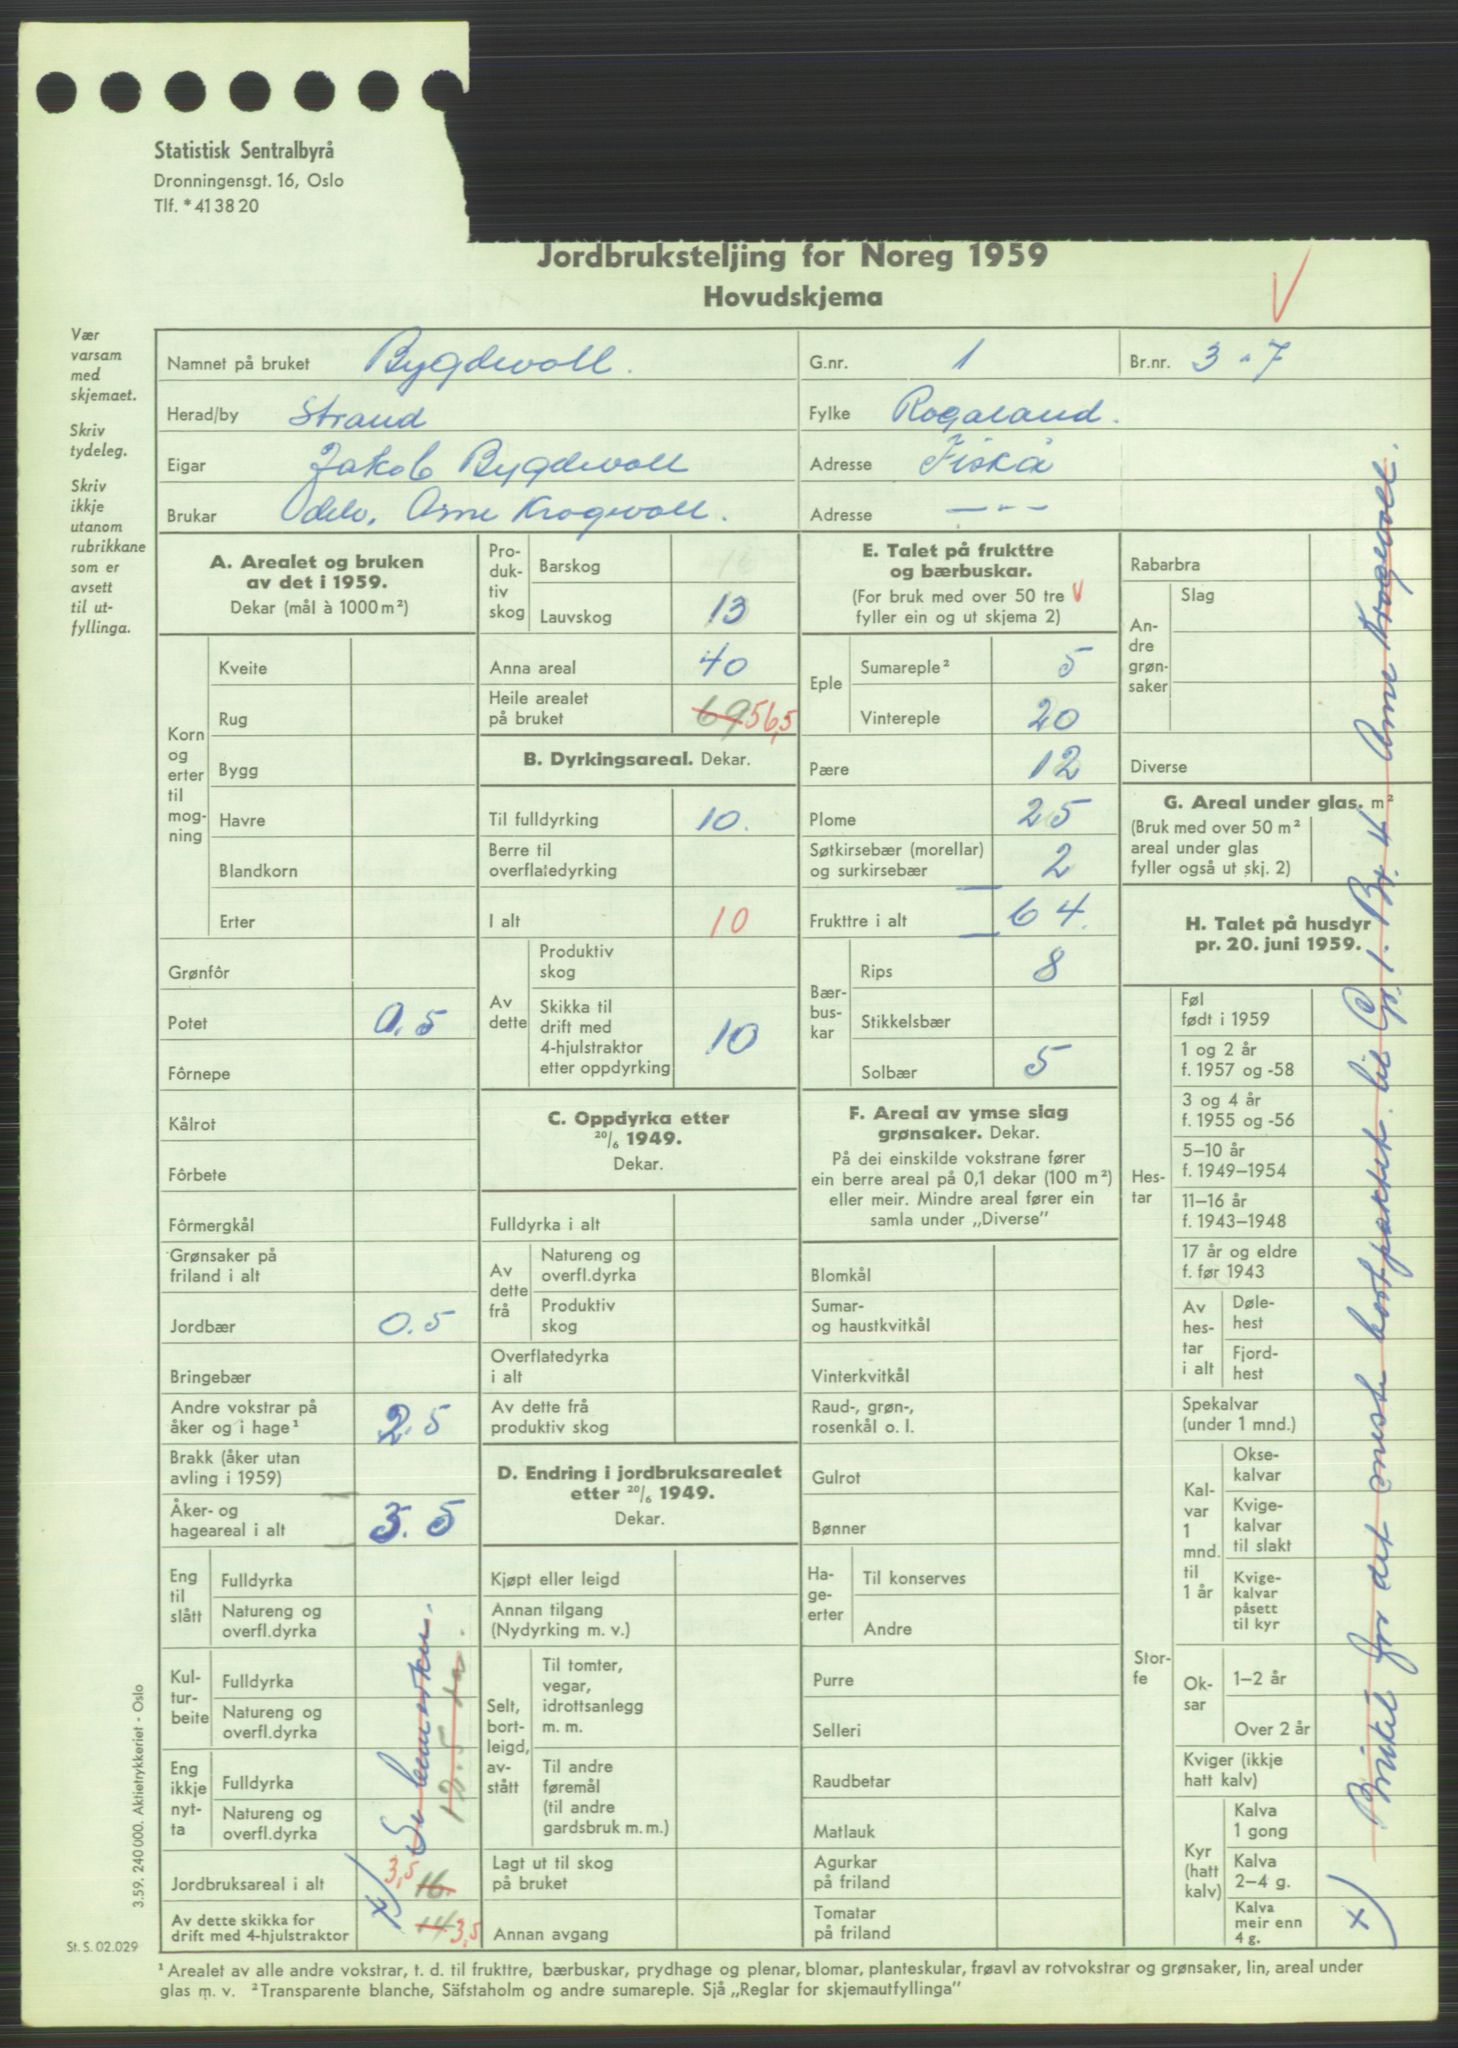 Statistisk Sentralbyrå
Dronningensgt. 16, Oslo
Tlf. * 41 38 20
Jordbruksteljing for Noreg 1959
Hovudskjema
Vær
varsam
med
skjemaet.
Skriv
tydeleg.
Skriv
ikkje
utanom
rubrikkane
som er
avsett
til ut-
fyllinga.
Namnet på bruket Bygdevoll. G.nr. 1 Br.nr. 3 " 7
Herad/by Strand Fylke Rogaland.
Eigar Jakob Bygdevoll Adresse Fiskå
Brukar Odelv. Arne Krogevoll. Adresse — " —
A. Arealet og bruken
av det i 1959.
Dekar (mål à 1000 m²)
Korn og erter til mog-ning
Kveite
Rug
Bygg
Havre
Blandkorn
Erter
Grønfôr
Potet 0.5
Fôrnepe
Kålrot
Fôrbete
Fôrmergkål
Grønsaker på
friland i alt
Jordbær 0.5
Bringebær
Andre vokstrar på
åker og i hage¹ 2.5
Brakk (åker utan
avling i 1959)
Åker- og
hageareal i alt 3.5
Eng til slått
Fulldyrka
Natureng og
overfl.dyrka
Kul-tur-beite
Fulldyrka
Natureng og
overfl.dyrka
Eng ikkje nyt-ta
Fulldyrka
Natureng og
overfl.dyrka
12.5
Jordbruksareal i alt 3,5 16.
Av dette skikka for
drift med 4-hjulstraktor 14 3,5
Pro-duk-tiv skog
Barskog
Lauvskog 13
Anna areal 40
Heile arealet
på bruket 69 56,5
B. Dyrkingsareal. Dekar.
Til fulldyrking 10.
Berre til
overflatedyrking
I alt 10
Av dette
Produktiv
skog
Skikka til
drift med
4-hjulstraktor
etter oppdyrking 10
C. Oppdyrka etter
20/6 1949.
Dekar.
Fulldyrka i alt
Av dette frå
Natureng og
overfl.dyrka
Produktiv
skog
Overflatedyrka
i alt
Av dette frå
produktiv skog
D. Endring i jordbruksarealet
etter 20/6 1949.
Dekar.
Kjøpt eller leigd
Annan tilgang
(Nydyrking m. v.)
Selt, bort-leigd, av-stått
Til tomter,
vegar,
idrottsanlegg
m. m.
Til andre
føremål
(til andre
gardsbruk m. m.)
Lagt ut til skog
på bruket
Annan avgang
E. Talet på frukttre
og bærbuskar.
(For bruk med over 50 tre
fyller ein og ut skjema 2)
Eple
Sumareple² 5
Vintereple 20
Pære 12
Plome 25
Søtkirsebær (morellar)
og surkirsebær 2
Frukttre i alt 64.
Bær-bus-kar
Rips 8
Stikkelsbær
Solbær 5
F. Areal av ymse slag
grønsaker. Dekar.
På dei einskilde vokstrane fører
ein berre areal på 0,1 dekar (100 m²)
eller meir. Mindre areal fører ein
samla under „Diverse”
Blomkål
Sumar-
og haustkvitkål
Vinterkvitkål
Raud-, grøn-,
rosenkål o. l.
Gulrot
Bønner
Ha-ge-erter
Til konserves
Andre
Purre
Selleri
Raudbetar
Matlauk
Agurkar
på friland
Tomatar
på friland
Rabarbra
An-dre grøn-saker
Slag
Diverse
G. Areal under glas. m²
(Bruk med over 50 m²
areal under glas
fyller også ut skj. 2)
H. Talet på husdyr
pr. 20. juni 1959.
Hes-tar
Føl
født i 1959
1 og 2 år
f. 1957 og -58
3 og 4 år
f. 1955 og -56
5–10 år
f. 1949–1954
11–16 år
f. 1943–1948
17 år og eldre
f. før 1943
Av hes-tar i alt
Døle-
hest
Fjord-
hest
Stor-fe
Spekalvar
(under 1 mnd.)
Kal-var 1 mnd. til 1 år
Okse-
kalvar
Kvige-
kalvar
til slakt
Kvige-
kalvar
påsett
til kyr
Ok-sar
1–2 år
Over 2 år
Kviger (ikkje
hatt kalv)
Kyr (hatt kalv)
Kalva
1 gong
Kalva
2–4 g.
Kalva
meir enn
4 g.
x) Bruket for det meste bortpaktet til G. 1. Br. 4 Arne Krogevoll.
3.59. 240 000. Aktietrykkeriet - Oslo
St. S. 02.029
¹ Arealet av alle andre vokstrar, t. d. til frukttre, bærbuskar, prydhage og plenar, blomar, planteskular, frøavl av rotvokstrar og grønsaker, lin, areal under
glas m. v. ² Transparente blanche, Säfstaholm og andre sumareple. Sjå „Reglar for skjemautfyllinga”